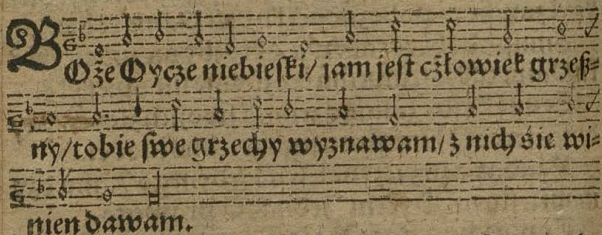 BOże Oycze niebieſki/ jam jeſt człowiek grzeß=
ny/tobie ſwe grzechy wyznawam/ z nich śie wi=
nien dawam.